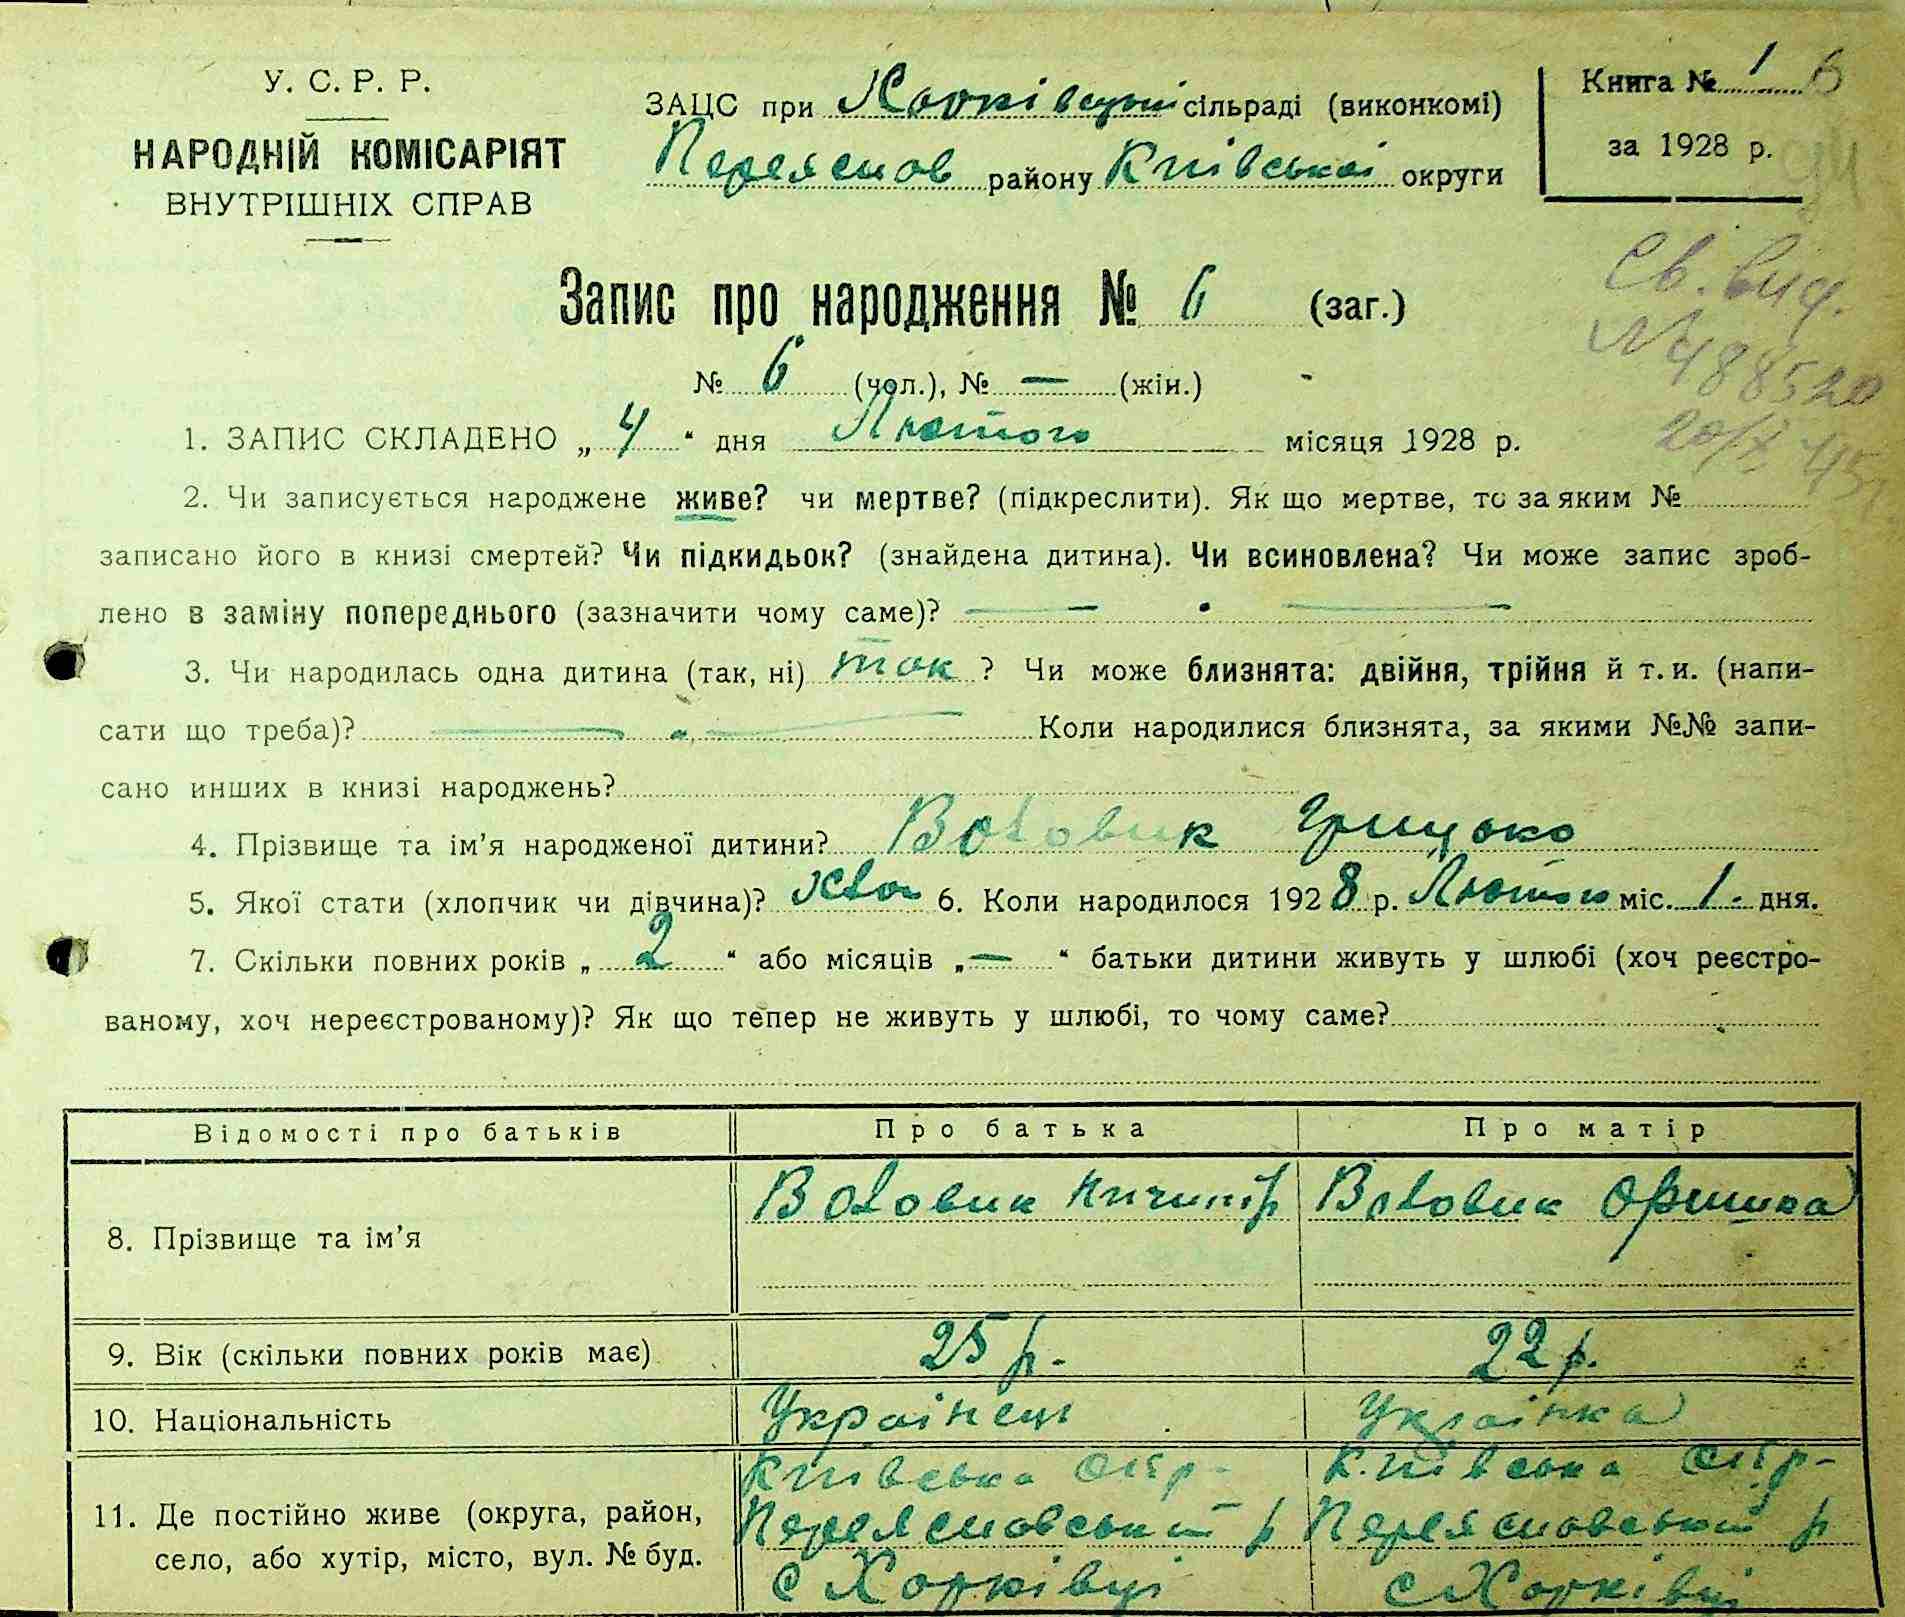 У. С. Р. Р.
НАРОДНІЙ КОМІСАРІЯТ
ВНУТРІШНІХ СПРАВ
ЗАЦС при Харківецькій сільраді (виконкомі)
Переяслав району Київської округи
Книга № 1
за 1928 р.
Св. вид.
№ 488520
20/X 45
Запис про народження № 6 (заг.)
№ 6 (чол.), № — (жін.)
1. ЗАПИС СКЛАДЕНО „ 4 “ дня Лютого місяця 1928 р.
2. Чи записується народжене живе? чи мертве? (підкреслити). Як що мертве, то за яким №
записано його в книзі смертей? Чи підкидьок? (знайдена дитина). Чи всиновлена? Чи може запис зроб-
лено в заміну попереднього (зазначити чому саме)? — —
3. Чи народилась одна дитина (так, ні) так ? Чи може близнята: двійня, трійня й т. и. (напи-
сати що треба)? — „ — Коли народилися близнята, за якими №№ запи-
сано инших в книзі народжень?
4. Прізвище та ім'я народженої дитини? Вовк Грицько
5. Якої стати (хлопчик чи дівчина)? хлоп 6. Коли народилося 1928 р. Лютого міс. 1. дня.
7. Скільки повних років „ 2 “ або місяців „ — “ батьки дитини живуть у шлюбі (хоч реєстро-
ваному, хоч нереєстрованому)? Як що тепер не живуть у шлюбі, то чому саме?
Відомості про батьків Про батька Про матір
8. Прізвище та ім'я Воловик Ничипір Воловик Оришка
9. Вік (скільки повних років має) 25 р. 22 р.
10. Національність Українець Українка
Київська окр- Київська окр-
11. Де постійно живе (округа, район, Переяславський р Переяславський р
село, або хутір, місто, вул. № буд. с Харківці с Харківці